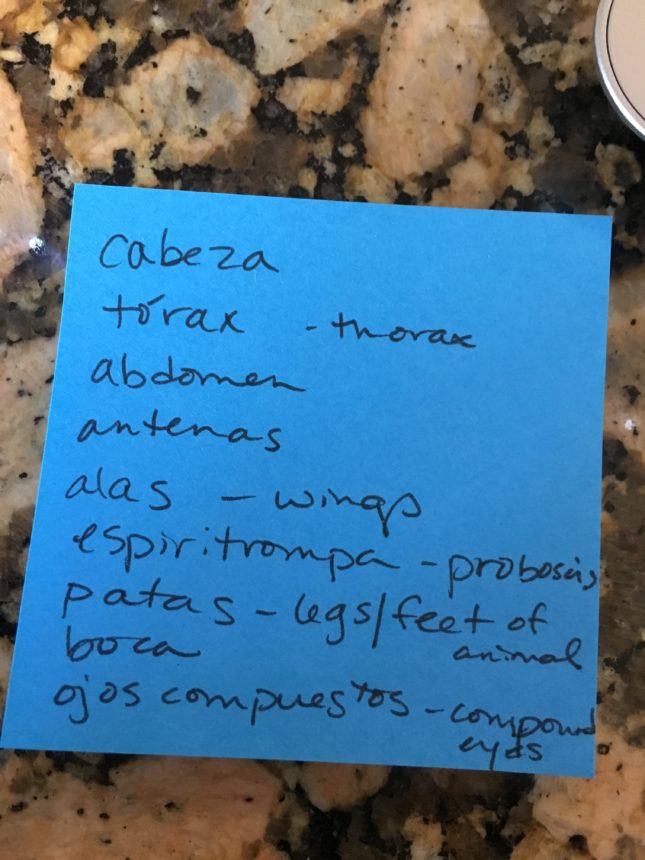 cabeza
tórax - thorax
abdomen
antenas
alas - wings
espiritrompa - proboscis
patas - legs/feet of
animal
boca
ojos compuestos - compound
eyes